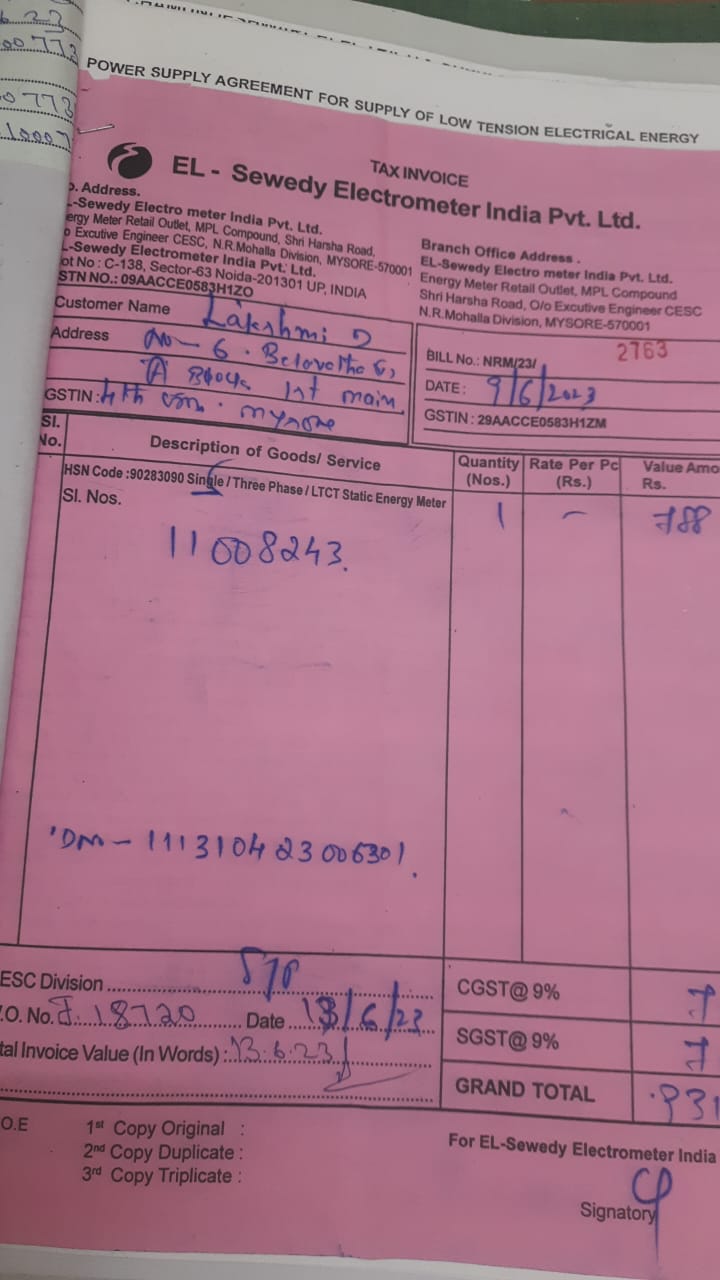 POWER SUPPLY AGREEMENT FOR SUPPLY OF LOW TENSION ELECTRICAL ENERGY
TAX INVOICE
EL - Sewedy Electrometer India Pvt. Ltd.
. Address.
-Sewedy Electro meter India Pvt. Ltd.
ergy Meter Retail Outlet, MPL Compound, Shri Harsha Road,
Excutive Engineer CESC, N.R.Mohalla Division, MYSORE-570001
-Sewedy Electrometer India Pvt. Ltd.
ot No : C-138, Sector-63 Noida-201301 UP, INDIA
STN NO.: 09AACCE0583H1ZO
Branch Office Address .
EL-Sewedy Electro meter India Pvt. Ltd.
Energy Meter Retail Outlet, MPL Compound
Shri Harsha Road, O/o Excutive Engineer CESC
N.R.Mohalla Division, MYSORE-570001
Customer Name Lakshmi D
Address No - 6 . Belavatha
A Block 1st main
GSTIN : 4th . mysore
BILL No.: NRM/23/ 2763
DATE : 9/6/2023
GSTIN : 29AACCE0583H1ZM
Sl. No. Description of Goods/ Service Quantity (Nos.) Rate Per Pc (Rs.) Value Amo Rs.
HSN Code :90283090 Single / Three Phase / LTCT Static Energy Meter 1 - 788
Sl. Nos.
11008243.
DM - 111310423006301.
ESC Division
.O. No. 18720 Date 13/6/23
tal Invoice Value (In Words) : 13.6.23
CGST@ 9% 7
SGST@ 9% 7
GRAND TOTAL 931
O.E
1st Copy Original :
2nd Copy Duplicate :
3rd Copy Triplicate :
For EL-Sewedy Electrometer India
Signatory